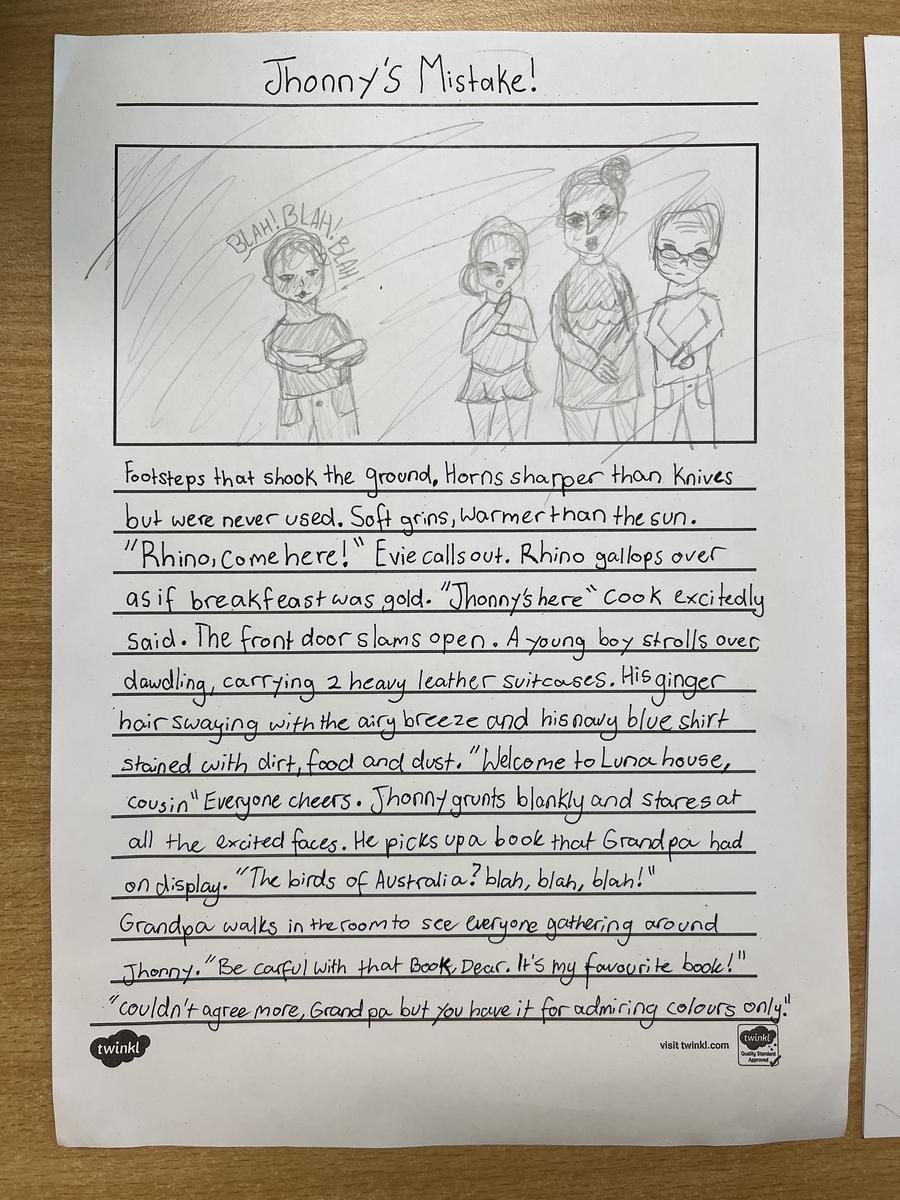 Jhonny's Mistake!
BLAH! BLAH! BLAH!
Footsteps that shook the ground, Horns sharper than Knives
but were never used. Soft grins, warmer than the sun.
"Rhino, come here!" Evie calls out. Rhino gallops over
as if breakfeast was gold. "Jhonny's here" Cook excitedly
said. The front door slams open. A young boy strolls over,
dawdling, carrying 2 heavy leather suitcases. His ginger
hair swaying with the airy breeze and his navy blue shirt
stained with dirt, food and dust. "Welcome to Luna house,
cousin" Everyone cheers. Jhonny grunts blankly and stares at
all the excited faces. He picks up a book that Grandpa had
on display. "The birds of Australia? blah, blah, blah!"
Grandpa walks in the room to see everyone gathering around
Jhonny. "Be carful with that Book, Dear. It's my favourite book!"
"couldn't agree more, Grandpa but you have it for admiring colours only."
twinkl
visit twinkl.com
twinkl
Quality Standard
Approved